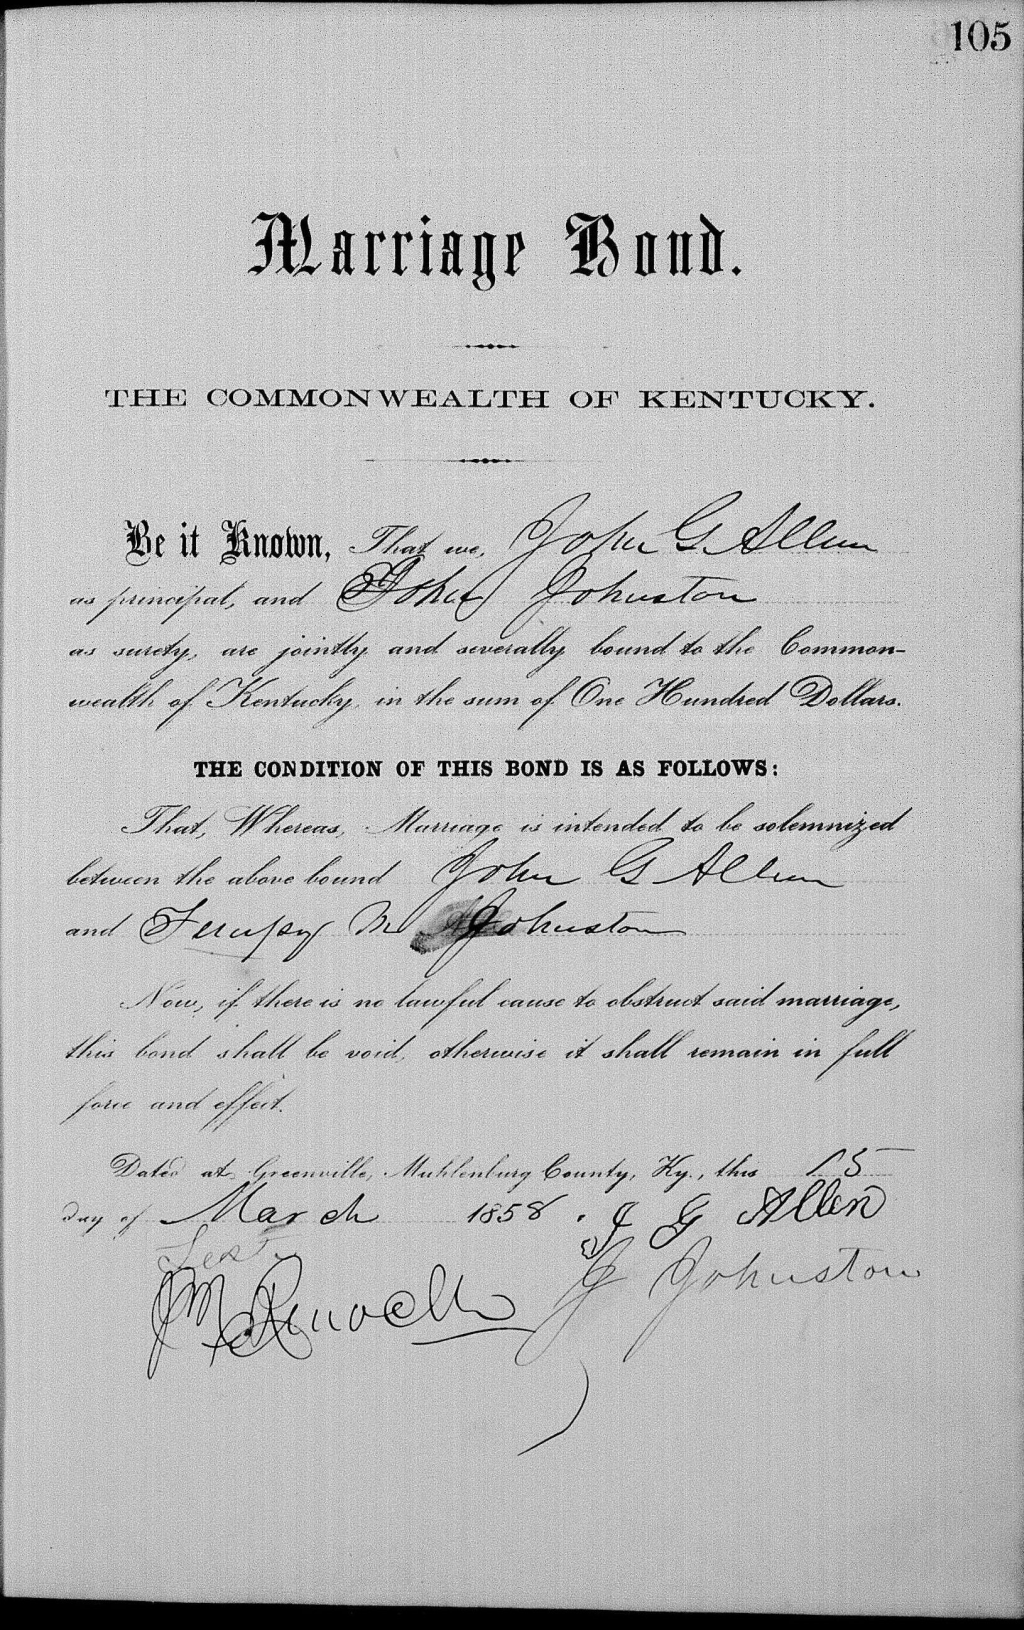 105
Marriage Bond.
THE COMMONWEALTH OF KENTUCKY.
Be it Known, That we, John G. Allen
as principal, and John Johnston
as surety, are jointly and severally bound to the Common-
wealth of Kentucky, in the sum of One Hundred Dollars.
THE CONDITION OF THIS BOND IS AS FOLLOWS:
That, Whereas, Marriage is intended to be solemnized
between the above bound John G Allen
and M Johnston
Now, if there is no lawful cause to obstruct said marriage,
this bond shall be void, otherwise it shall remain in full
force and effect.
Dated at Greenville, Muhlenburg County, Ky., this 15
day of March 1858. J G Allen
Test
J Johnston